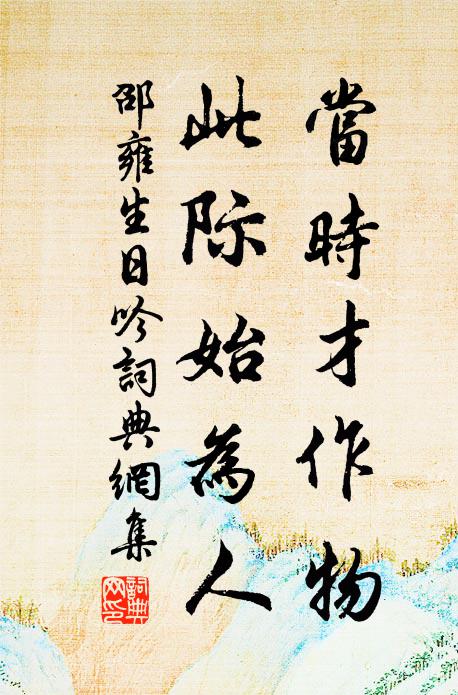 當時才作物
此际始為人
邵雍生日吟詞典網集
詞典